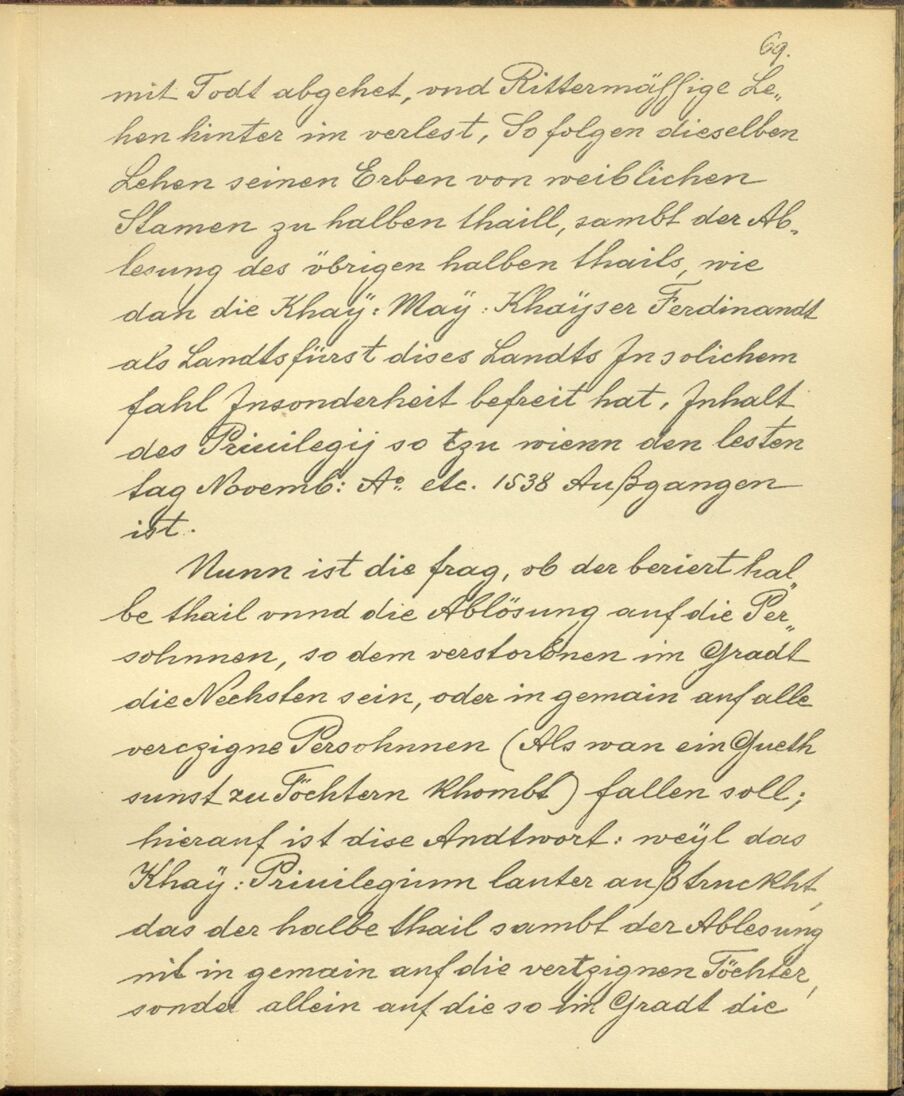 69.
mit Todt abgehet, vnd Rittermässige Le„
hen hinter im verlest, So folgen dieselben
Lehen seinen Erben von weiblichen
Stamen zu halben thaill, sambt der Ab„
lesung des übrigen halben thails, wie
dan die Khaÿ: Maÿ: Khaÿser Ferdinandt
als Landtsfürst dises Landts In solichem
fahl Insonderheit befreit hat, Inhalt
des Priuilegij so tzu wienn den lesten
tag Novemb: Ao. etc. 1538 Außgangen
ist.
Nunn ist die frag, ob der beriert hal„
be thail vnnd die Ablösung auf die Per„
sohnnen, so dem verstorbnen im Gradt
die Nechsten sein, oder in gemain auf alle
verczigne Persohnnen (Als wan ein Gueth
sunst zu Töchtern khombt) fallen soll;
hierauf ist dise Andtwort: weÿl das
Khaÿ: Priuilegium lauter außtruckht,
das der halbe thail sambt der Ablesung
nit in gemain auf die vertzignen Töchter,
sonder allein auf die so im Gradt die